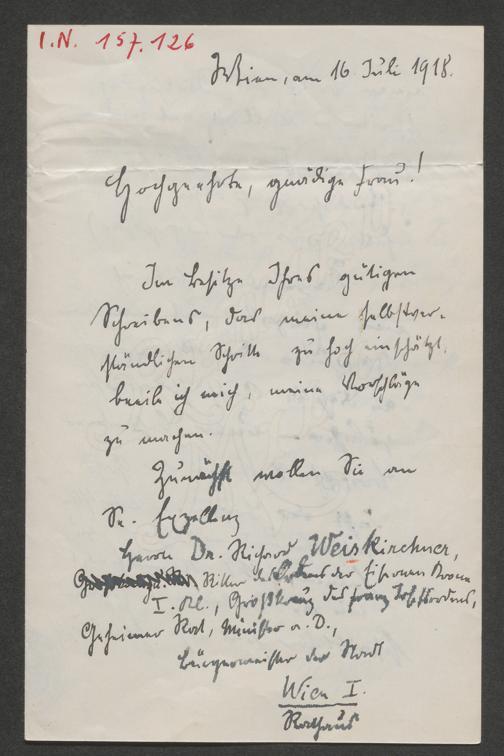 I.N. 157.126
Wien, am 16. Juli 1918.
Hochgeehrte, gnädige Frau!
Im Besitze Ihres gütigen
Schreibens, das meine selbstver-
ständlichen Schritte zu hoch einschätzt,
beeile ich mich, meine Vorschläge
zu machen.
Zunächst wollen Sie an
Se. Exzellenz
Herrn Dr. Richard Weiskirchner,
Ritter des Ordens der Eisernen Krone
I. Kl., Großkreuz des Franz Josefsordens,
Geheimer Rat, Minister a. D.,
Bürgermeister der Stadt
Wien I.
Rathaus